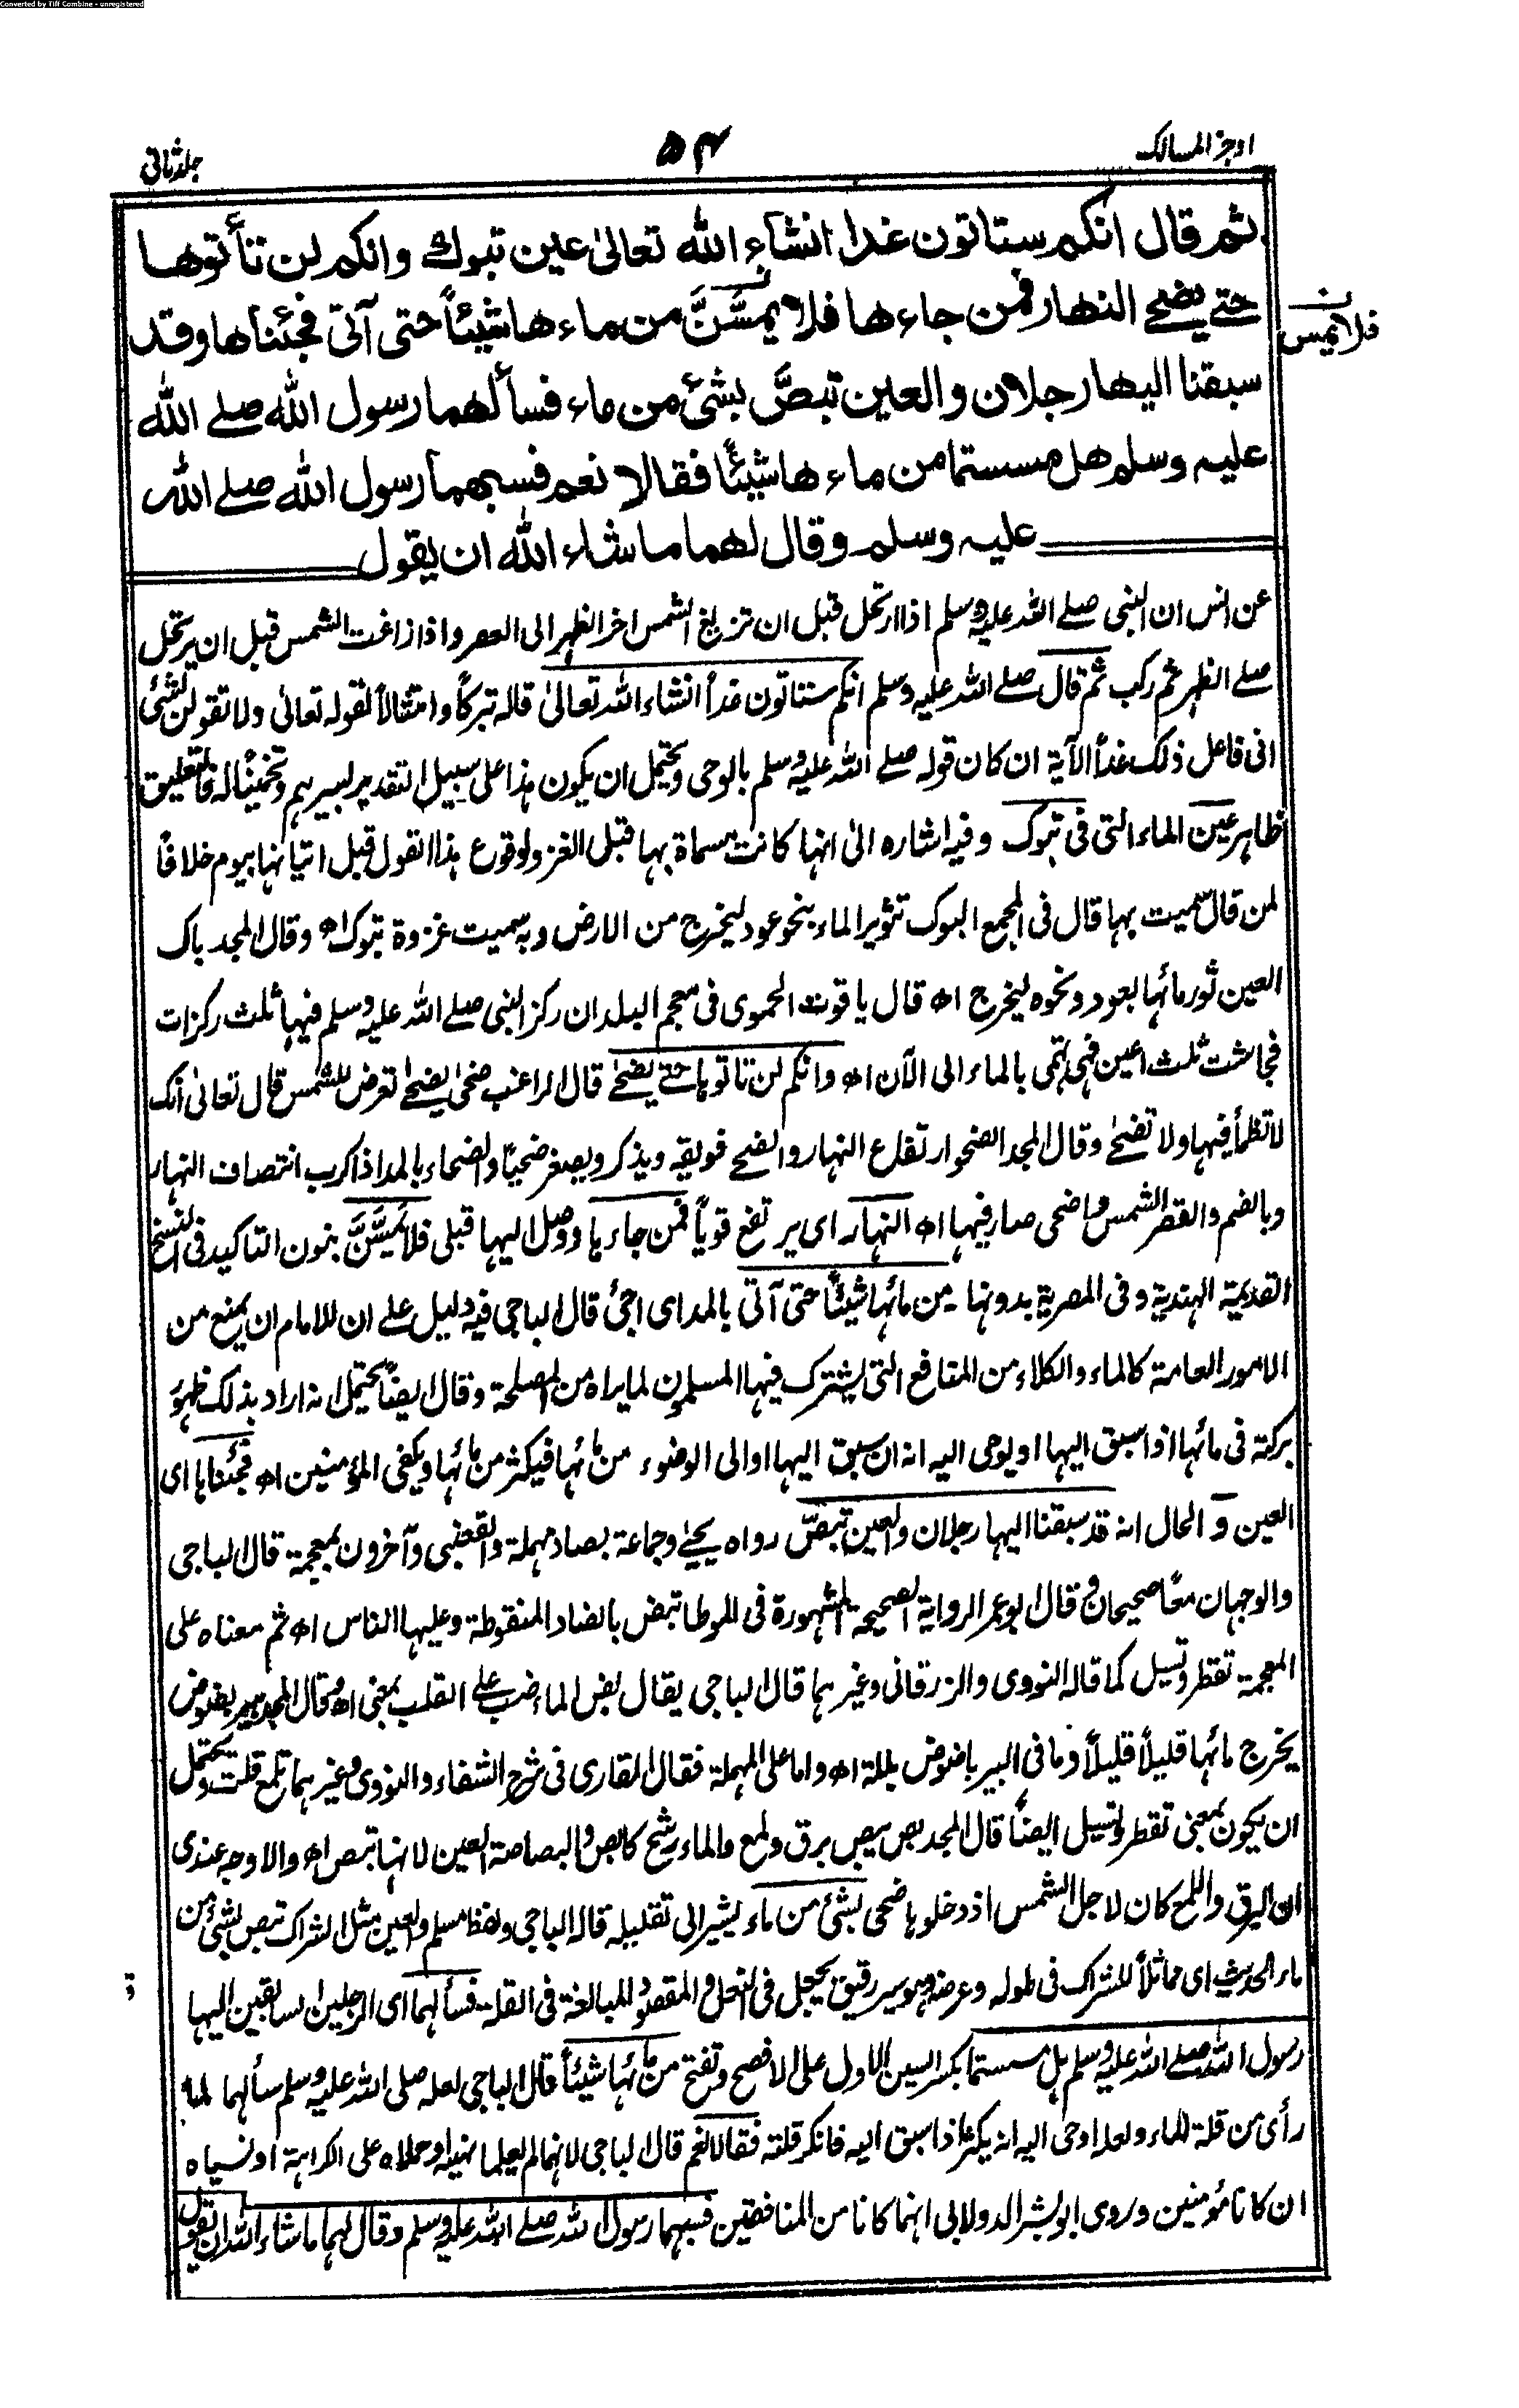 Converted by Tiff Combine - unregistered
اوجز المسالک
۵۴
جلد ثانی
ثم قال انکم ستاتون غدا انشاء الله تعالیٰ عین تبوک وانکم لن تأتوھا
حتے یضحے النھار فمن جاءھا فلا یمسَّنَّ من ماءھا شیئاً حتی آتی فجئناھا وقد
فلا یمس
سبقنا الیھا رجلان والعین تبصَّ بشئ من ماء فسألھما رسول الله صلے الله
علیہ وسلم ھل مسستما من ماءھا شیئًا فقالا نعم فسبھما رسول الله صلے الله
علیہ وسلم وقال لھما ما شاء الله ان یقول
عن انس ان النبی صلے اللہ علیہ وسلم اذا ارتحل قبل ان تزیغ الشمس اخر الظہر الی العصر واذا زاغت الشمس قبل ان یرتحل
صلے الظہر ثم رکب ثم قال صلے اللہ علیہ وسلم انکم ستاتون غداً انشاء اللہ تعالیٰ قالہ تبرکاً وامتثالاً لقولہ تعالیٰ ولا تقولن لشئ
انی فاعل ذلک غداً الآیة ان کان قولہ صلے اللہ علیہ وسلم بالوحی ویحتمل ان یکون ہذا علی سبیل التقدیر لسیرہم وتخمیناً لہ فالتعلیق
ظاہر عین الماء التی فی تبوک وفیہ اشارہ الیٰ انہا کانت مسماة بہا قبل الغزو لوقوع ہذا القول قبل اتیانہا بیوم خلافاً
لمن قال سمیت بہا قال فی المجمع البوک تثویر الماء بنحو عود لیخرج من الارض وبہ سمیت غزوة تبوک اھ وقال المجد باک
العین ثور مائہا بعود ونحوہ لیخرج اھ قال یاقوت الحموی فی معجم البلدان رکز النبی صلے اللہ علیہ وسلم فیہا ثلث رکزات
فجاشت ثلث اعین فہی تہمی بالماء الی الآن اھ وانکم لن تاتوہا حتے یضحےٰ قال الراغب ضحیٰ یضحےٰ تعرض للشمس قال تعالیٰ انک
لا تظمأ فیہا ولا تضحےٰ وقال المجد الضحو ارتفاع النہار والضحے فویقہ ویذکر ویصغر ضحیاً والضحاء بالمد اذا کرب انتصاف النہار
وبالضم والقصر الشمس واضحی صار فیہا اھ النہار ای یرتفع قویاً فمن جاءہا ووصل الیہا قبلی فلا یَمَسَّنَّ بنون التاکید فی النسخ
القدیمة الہندیة وفی المصریة بدونہا ۔ من مائہا شیئاً حتی آتی بالمد ای اجئ قال الباجی فیہ دلیل علے ان للامام ان یمنع من
الامور العامة کالماء والکلاء من المنافع التی یشترک فیہا المسلمون لما یراہ من المصلحة وقال ایضاً یحتمل انہ اراد بذلک ظہور
برکتہ فی مائہا اذا سبق الیہا او یوحی الیہ انہ ان سبق الیہا او الی الوضوء من مائہا فیکثر من مائہا ویکفی المؤمنین اھ فجئناہا ای
العین وَ الحال انہ قد سبقنا الیہا رجلان والعین تبصّ رواہ یحیےٰ وجماعة بصاد مہملة والقعنبی وآخرون بمعجمة قال الباجی
والوجہان معاً صحیحان وقال ابو عمر الروایة الصحیحة المشہورة فی الموطا تبض بالضاد المنقوطة وعلیہا الناس اھ ثم معناہ علی
المعجمة تقطر وتسیل کما قالہ النووی والزرقانی وغیرہما قال الباجی یقال بض الماء ضب علے القلب بمعنی اھ وقال المجد بیر بضوض
یخرج مائہا قلیلاً قلیلاً وما فی البیر باضوض بللة اھ واما علی المہملة فقال القاری فی شرح الشفاء والنووی وغیرہما تلمع قلت ویحتمل
ان یکون بمعنی تقطر وتسیل ایضاً قال المجد بص یبص برق ولمع والماء رشح کابص والبصاصة العین لانہا تبص اھ والاوجہ عندی
ان البرق واللمع کان لاجل الشمس اذ دخلوہا ضحی بشئ من ماء یشیر الی تقلیلہ قالہ الباجی ولفظ مسلم والعین مثل الشراک تبص بشئ من
ماء الحدیث ای مماثلاً للشراک فی طولہ وعرضہ وہو سیر رقیق یجعل فی النعل والمقصود المبالغة فی القلة فسألہما ای الرجلین السابقین الیہا
رسول اللہ صلے اللہ علیہ وسلم ہل مسستما بکسر السین الاول علی الافصح وتفتح من مائہا شیئاً قال الباجی لعلہ صلی اللہ علیہ وسلم سألہما لما
رأی من قلة الماء ولعلہ اوحی الیہ انہ یکثر اذا سبق الیہ فانکر قلتہ فقالا نعم قال الباجی لانہما لم یعلما نہیہ او حملاہ علی الکراہة او نسیاہ
ان کانا مؤمنین وروی ابو بشر الدولابی انہما کانا من المنافقین فسبہما رسول اللہ صلے اللہ علیہ وسلم وقال لہما ما شاء اللہ ان یقول